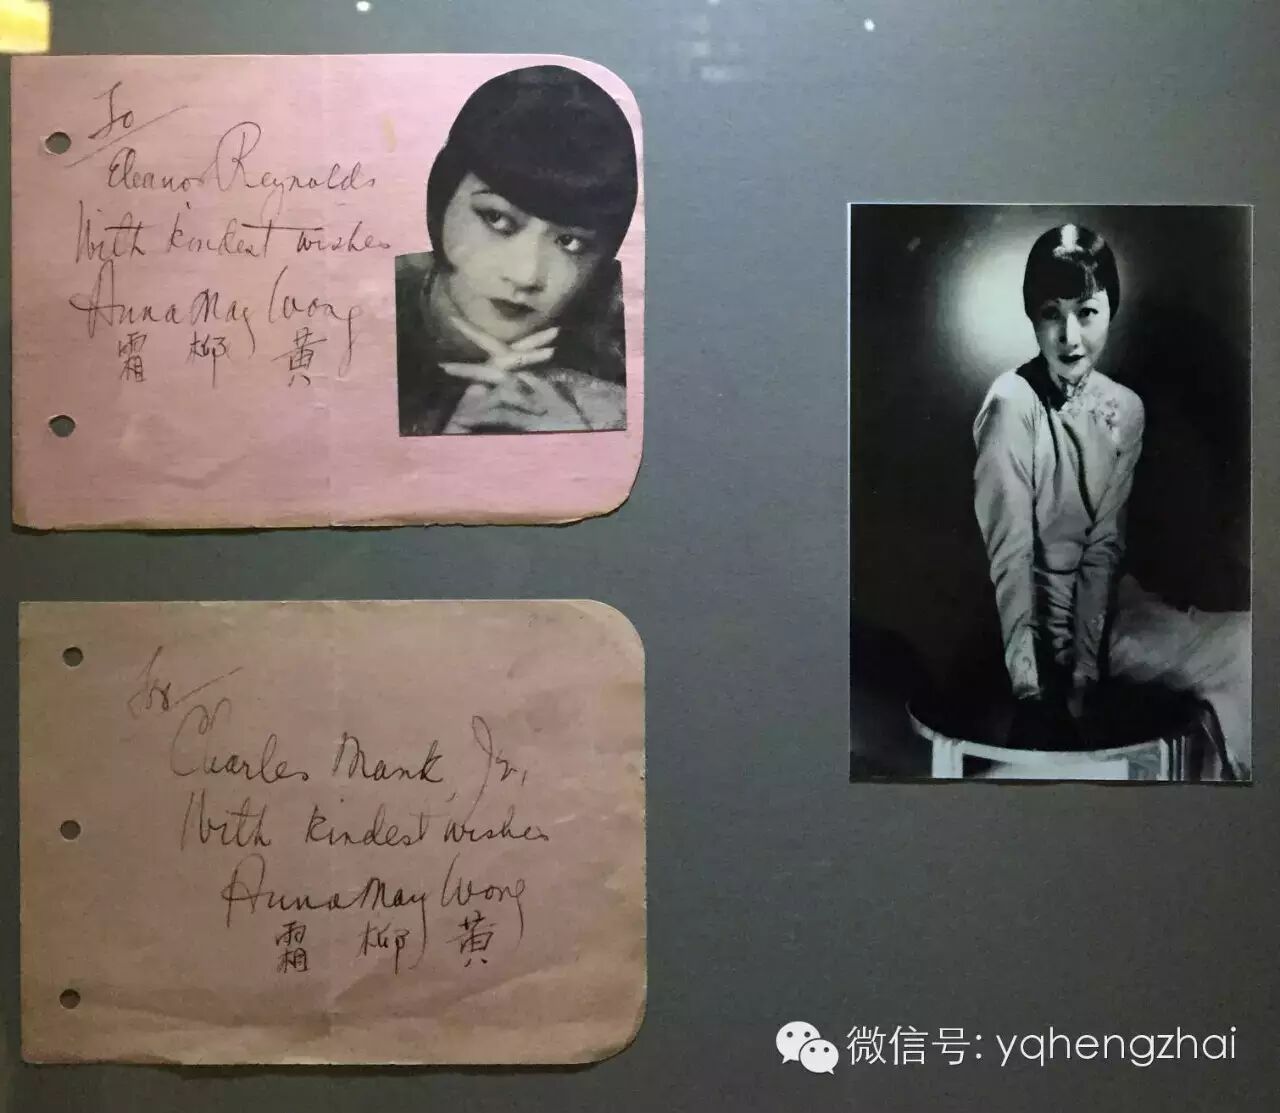 To
Eleanor Reynolds
With kindest wishes
Anna May Wong
霜 柳 黃
For
Charles Mank, Jr.,
With kindest wishes
Anna May Wong
霜 柳 黃
微信号: yqhengzhai